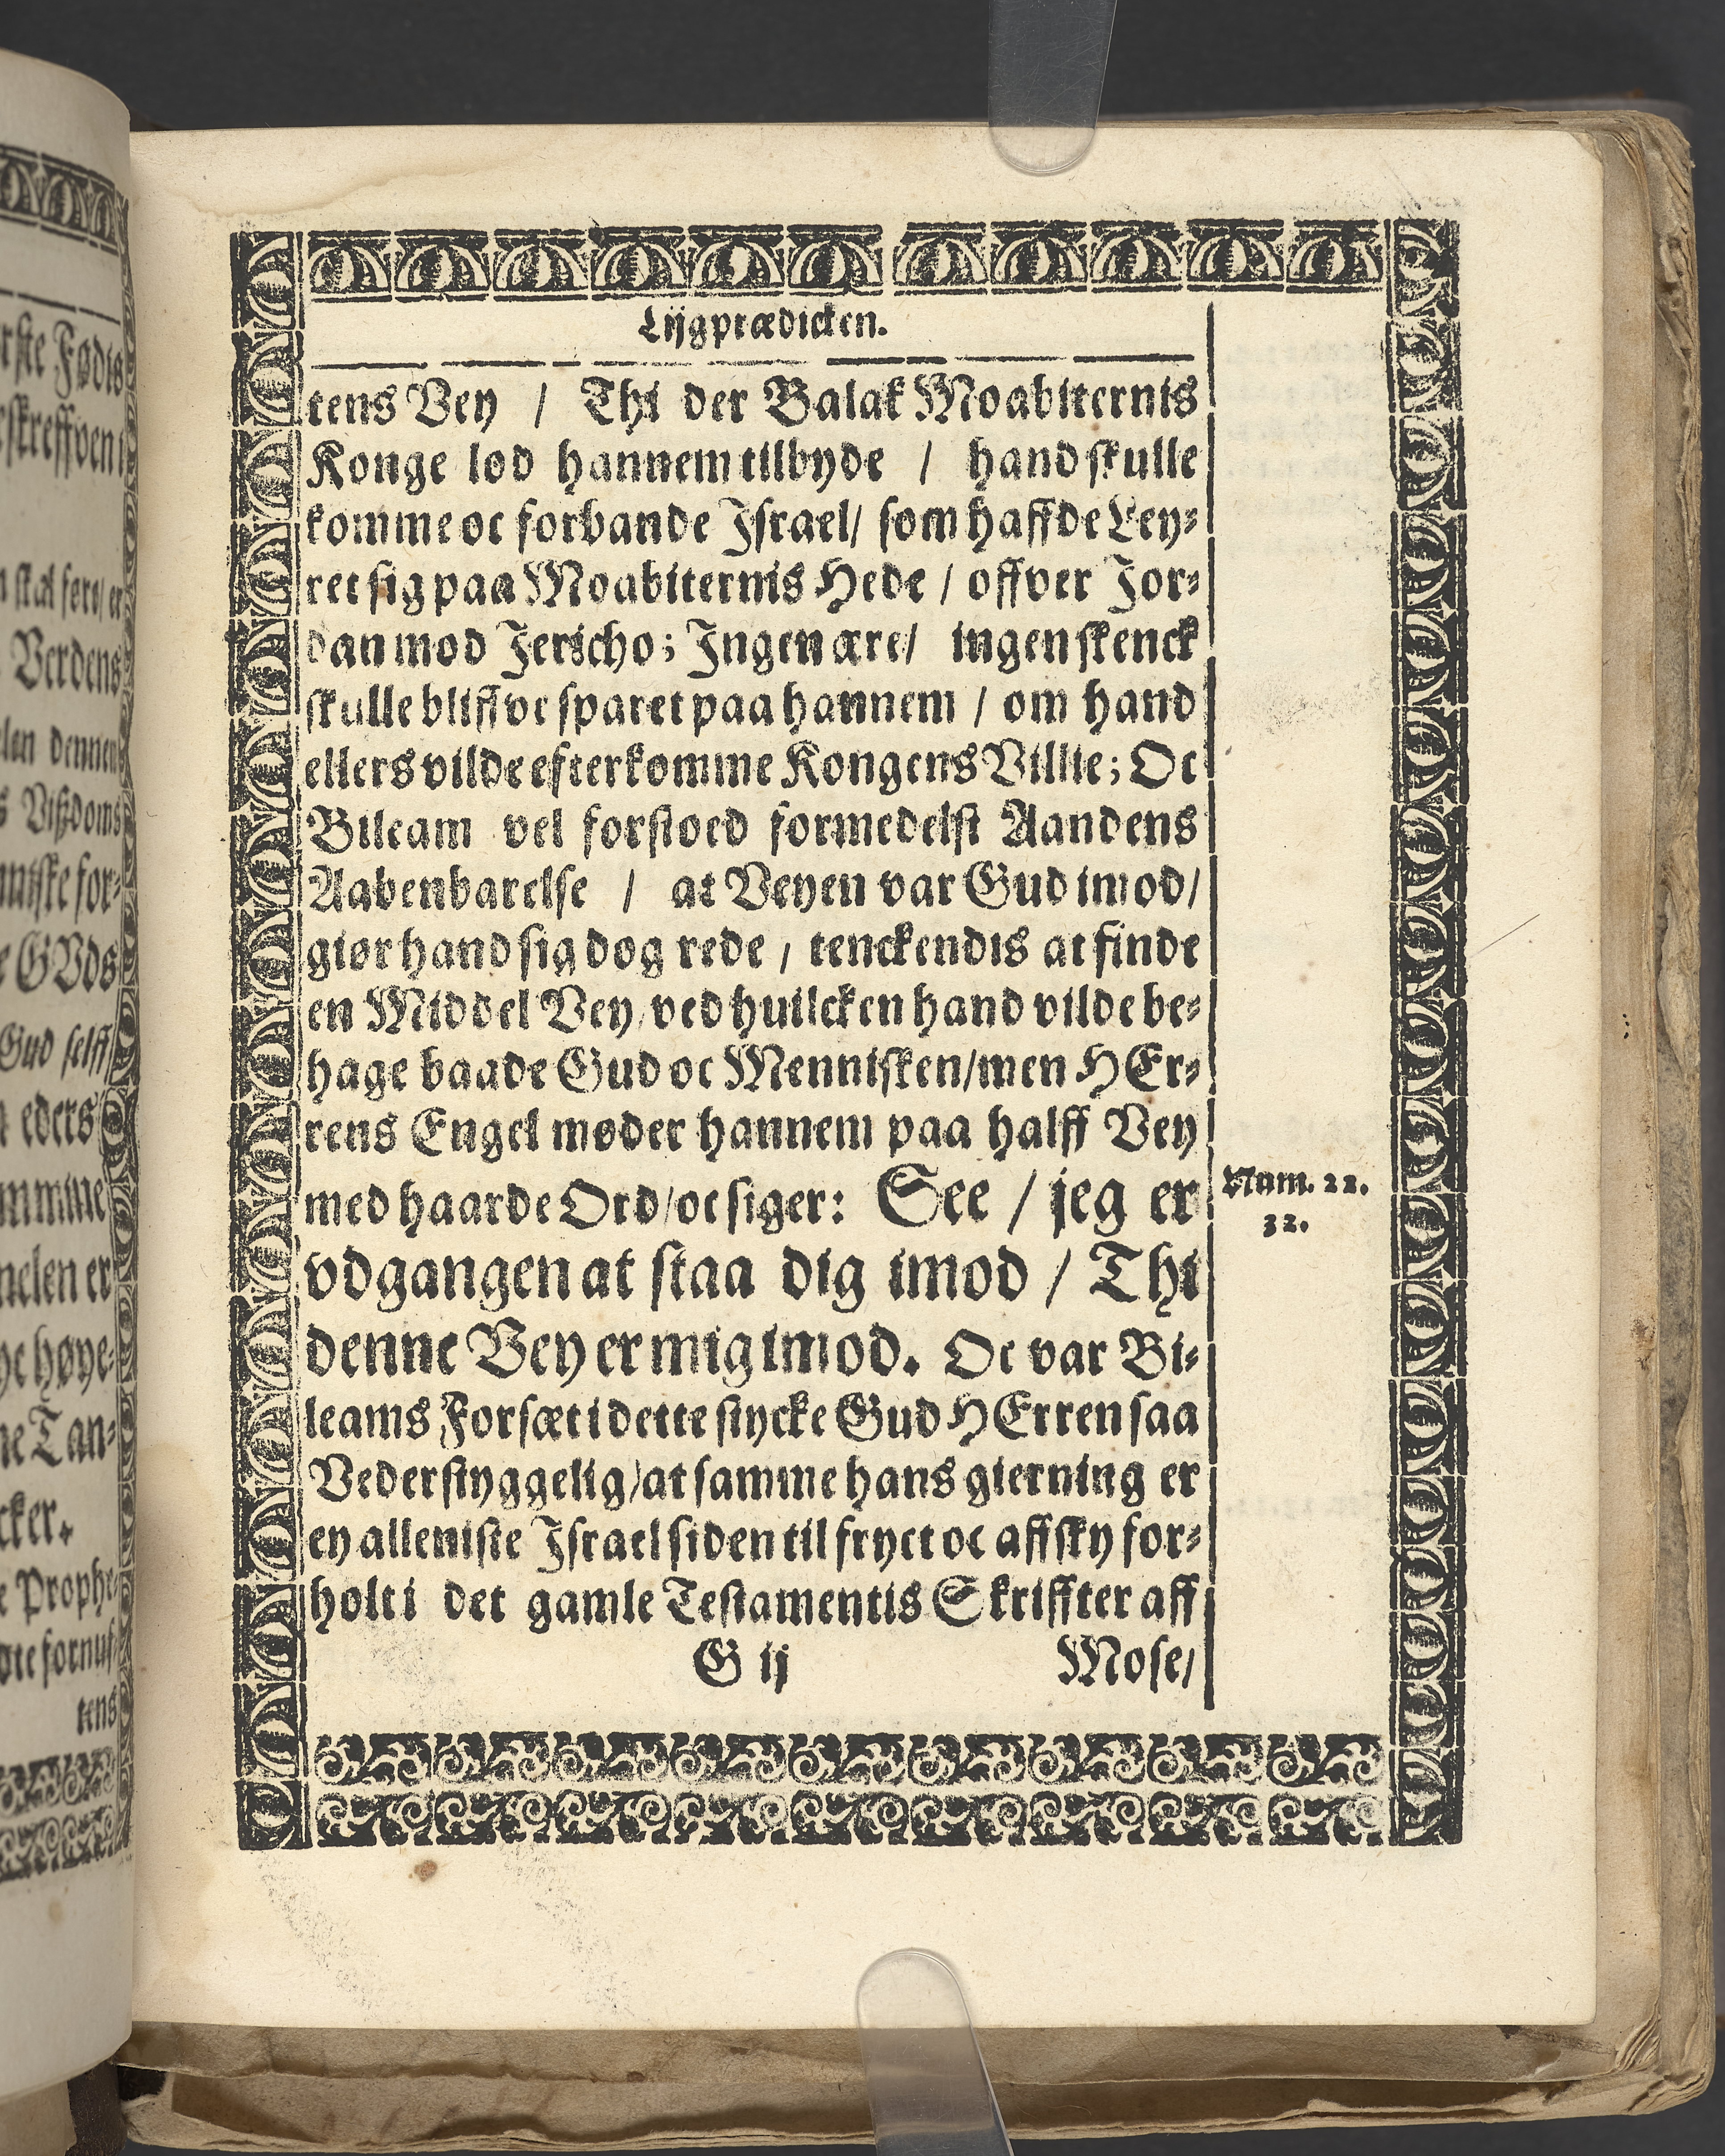 Lijgprædicken.
tens Vey / Thi der Balak Moabiternis
Konge lod hannem tilbyde / hand skulle
komme oc forbande Israel/ som haffde Ley-
ret sig paa Moabiternis Hede / offver Jor-
dan mod Jericho; Ingen ære/ ingen skenck
skulle bliffve sparet paa hannem / om hand
ellers vilde efterkomme Kongens Villie; Oc
Bileam vel forstoed formedelst Aandens
Aabenbarelse / at Veyen var Gud imod/
giør hand sig dog rede / tenckendis at finde
en Middel Vey/ ved huilcken hand vilde be-
hage baade Gud oc Mennisken/men HEr-
rens Engel møder hannem paa halff Vey
med haarde Ord/oc siger: See / jeg er
vdgangen at staa dig imod / Thi
denne Vey er mig imod. Oc var Bi-
leams Forsæt i dette stycke Gud HErren saa
Vederstyggelig/at samme hans gierning er
ey alleniste Israel siden til fryct oc affsky for-
holt i det gamle Testamentis Skriffter aff
G ij Mose/
Num. 22.
32.
rste Fødis
skreffven i
skal fere/ er
Verdens
len dennen
s Vißdoms
nniske for-
e GVds
Gud selff
eders
mmine
melen er
ye høye-
ne Tan-
cker.
e Prophe-
øte fornuf-
tens